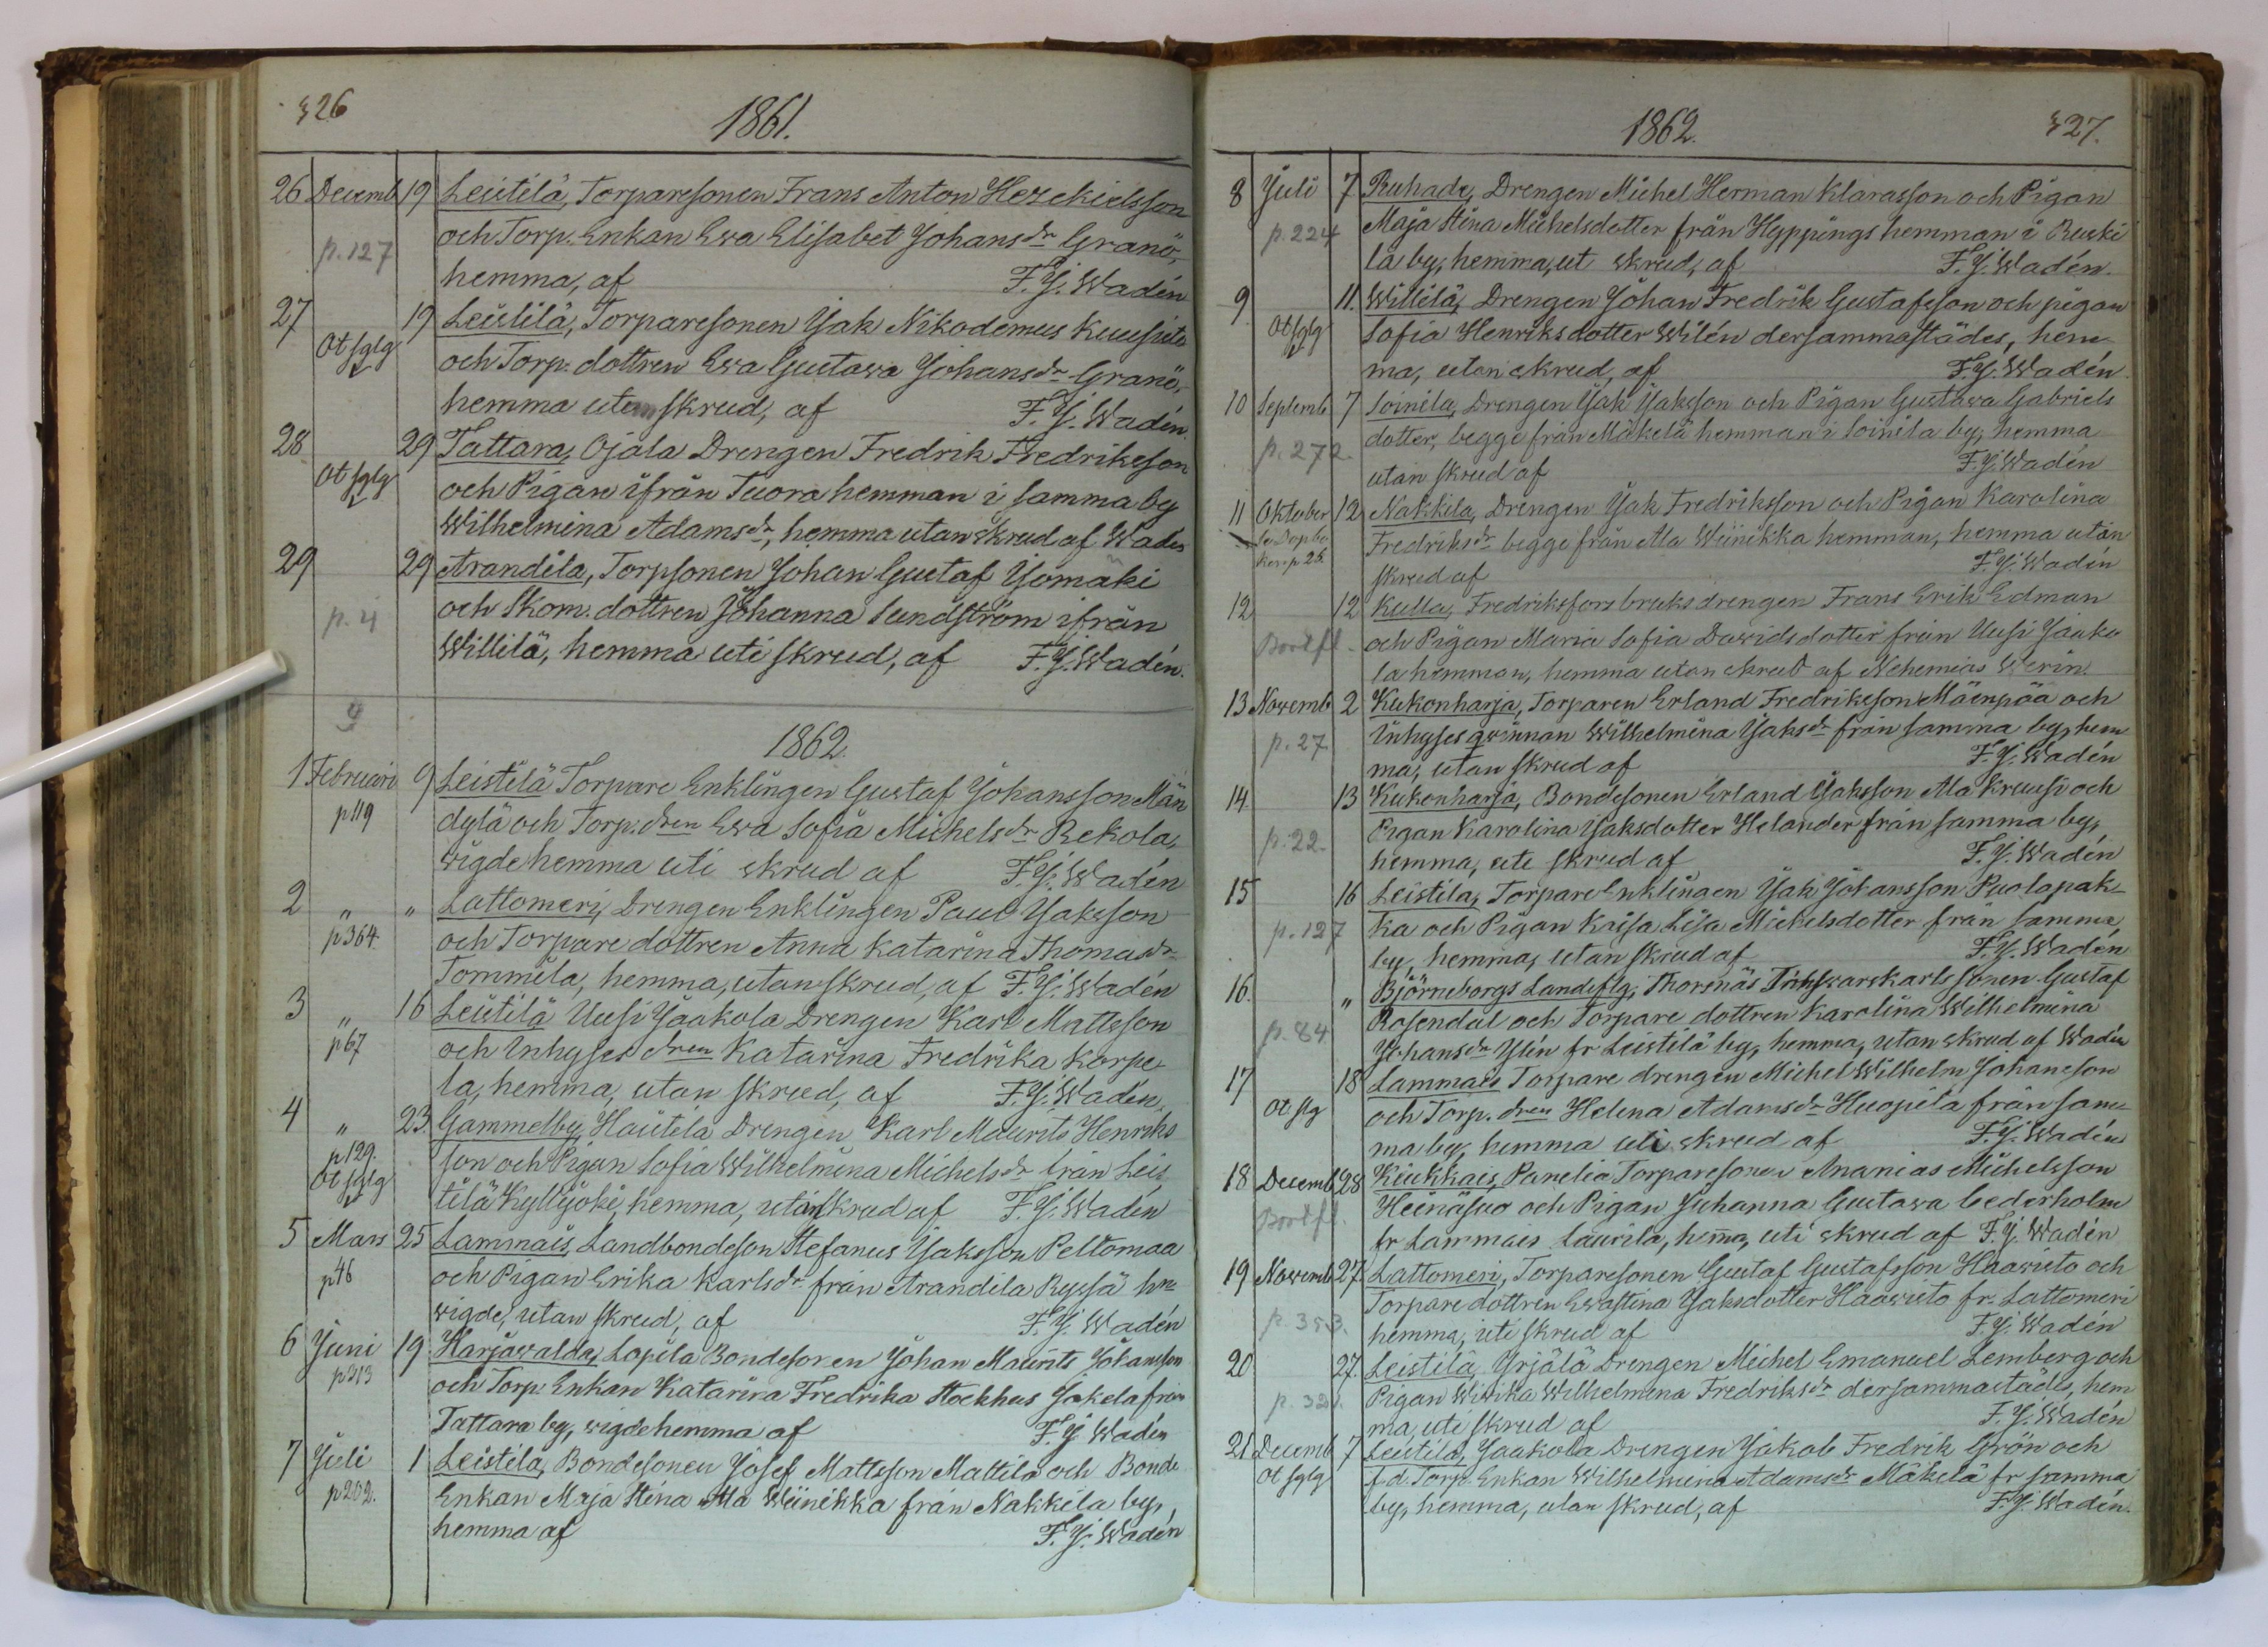 326
1861.
26 Decemb 19 Leistilä, Torparesonen Frans Anton Hezekielsson
p. 127 och Torp. Enkan Ewa Elisabet Johansdr Granö,
hemma, af F. J. Wadén
27 19 Leistilä, Torparesonen Jak Nikodemus Kuusisto
Otfglg och Torp. dottren Ewa Gustawa Johansdr Granö,
hemma utan skrud, af F. J. Wadén.
28 29 Tattara, Ojala Drengen Fredrik Fredriksson
Otfglg och Pigan ifrån Tuora hemman i samma by
Wilhelmina Adamsdr, hemma utan skrud af Wadén
29 29 Arandila, Torpsonen Johan Gustaf Yömäki
p. 4 och Skom. dottren Johanna Sundström ifrån
Willilä, hemma uti skrud, af F. J. Wadén.
9
1862.
1 Februari 9 Leistilä Torpare Enklingen Gustaf Johansson Män
p 119 dylä och Torp. dren Ewa Sofia Michelsdr Rekola,
wigde hemma uti skrud af F. J. Wadén
2 " " Lattomeri, Drengen Enklingen Paul Jaksson
p 364. och Torpare dottren Anna Katarina Thomasdr
Tommila, hemma, utan skrud, af F. J. Wadén
3 " 16 Leistilä Uusi Jaakola Drengen Karl Mattsson
p 67 och Inhyses dren Katarina Fredrika Korpe-
la, hemma, utan skrud, af F. J. Wadén.
4 " 23. Gammelby, Hautila Drengen Karl Maurits Henriks
p 129. son och Pigan Sofia Wilhelmina Michelsdr från Leis
Otfglg tilä Kyllijoki, hemma, utan skrud af F. J. Wadén
5 Mars 25 Lammais, Landbondeson Stefanus Jaksson Peltomaa
p 46 och Pigan Erika Karlsdr från Arandila Ryssä hn
wigde, utan skrud, af F. J. Wadén
6 Juni 19 Harjawalda, Lopila Bondesonen Johan Maurits Johansson
p 313 och Torp. Enkan Katarina Fredrika Stockhus Jokela från
Tattara by, wigde hemma af F. J. Wadén
7 Juli 1 Leistilä, Bondesonen Josef Mattsson Mattila och Bonde
p 202. Enkan Maja Stina Ala Wiinikka från Nakkila by,
hemma af F. J. Wadén
1862. 327.
8 Juli 7 Ruhade, Drengen Michel Herman Klarasson och Pigan
p. 224 Maja Stina Michelsdotter från Hyppings hemman i Ruski
la by, hemma, ut skrud, af F. J. Wadén.
9 11. Willilä, Drengen Johan Fredrik Gustafsson och pigan
Otfglg Sofia Henriksdotter Wilén dersammastädes, hem-
ma, utan skrud, af F. J. Wadén
10 Septemb 7 Soinila, Drengen Jak Jaksson och Pigan Gustawa Gabriels
p. 272. dotter, begge från Mäkelä hemman i Soinila by, hemma
utan skrud af F. J. Wadén
11 Oktober 12 Nakkila, Drengen Jak Fredriksson och Pigan Karolina
Fredriksdr begge från Ala Wiinikka hemman, hemma utan
skrud af F. J. Wadén
12 12 Kulla, Fredriksfors bruks drengen Frans Erik Edman
Bortfl. och Pigan Maria Sofia Dawidsdotter från Uusi Jaako
la hemman, hemma utan skrud af Nehemias Werin.
13 Novemb 2 Kukonharja, Torparen Erland Fredriksson Mäenpää och
p. 27 Inhyses qwinnan Wilhelmina Jaksdr från samma by, hem
ma, utan skrud af F. J. Wadén
14. 13 Kukonharja, Bondesonen Erland Jaksson Ala Kruusi och
p. 22. Pigan Karolina Jaksdotter Helander från samma by,
hemma, uti skrud af F. J. Wadén
15 16 Leistila, Torpare Enklingen Jak Johansson Puolapak-
p. 127 ka och Pigan Kaisa Lisa Michelsdotter från samma
by, hemma, utan skrud af F. J. Wadén
16. " Björneborgs Landsflg, Thorsnäs Gustaf
p. 84 Rosendal och Torpare dottren Karolina Wilhelmina
Johansdr Ylén fr Leistilä by, hemma, utan skrud af Wadén
17 18 Lammais Torpare drengen Michel Wilhelm Johansson
Otflg och Torp. dren Helena Adamsdr Huopila från sam-
ma by, hemma uti skrud af F. J. Wadén
18 Decemb 28 Kiukkais, Panelia Torparesonen Ananias Michelsson
Bortfl. Heinäsuo och Pigan Johanna Gustawa Cederholm
fr Lammais Laurila, hema, uti skrud af F. J. Wadén
19 Novemb 27. Lattomeri, Torparesonen Gustaf Gustafsson Haawisto och
p. 353. Torpare dottren Ewastina Jaksdotter Haawisto fr. Lattomeri
hemma, uti skrud af F. J. Wadén
20 27. Leistilä, Yrjälä Drengen Michel Emanuel Lemberg och
p. 321. Pigan Wiwika Wilhelmina Fredriksdr dersammastädes, hem
ma, uti skrud af F. J. Wadén
21 Decemb 7 Leistila, Jaakola Drengen Jakob Fredrik Grön och
Otfglg f.d. Torp. Enkan Wilhelmina Adamsdr Mäkelä fr samma
by, hemma, utan skrud, af F. J. Wadén.